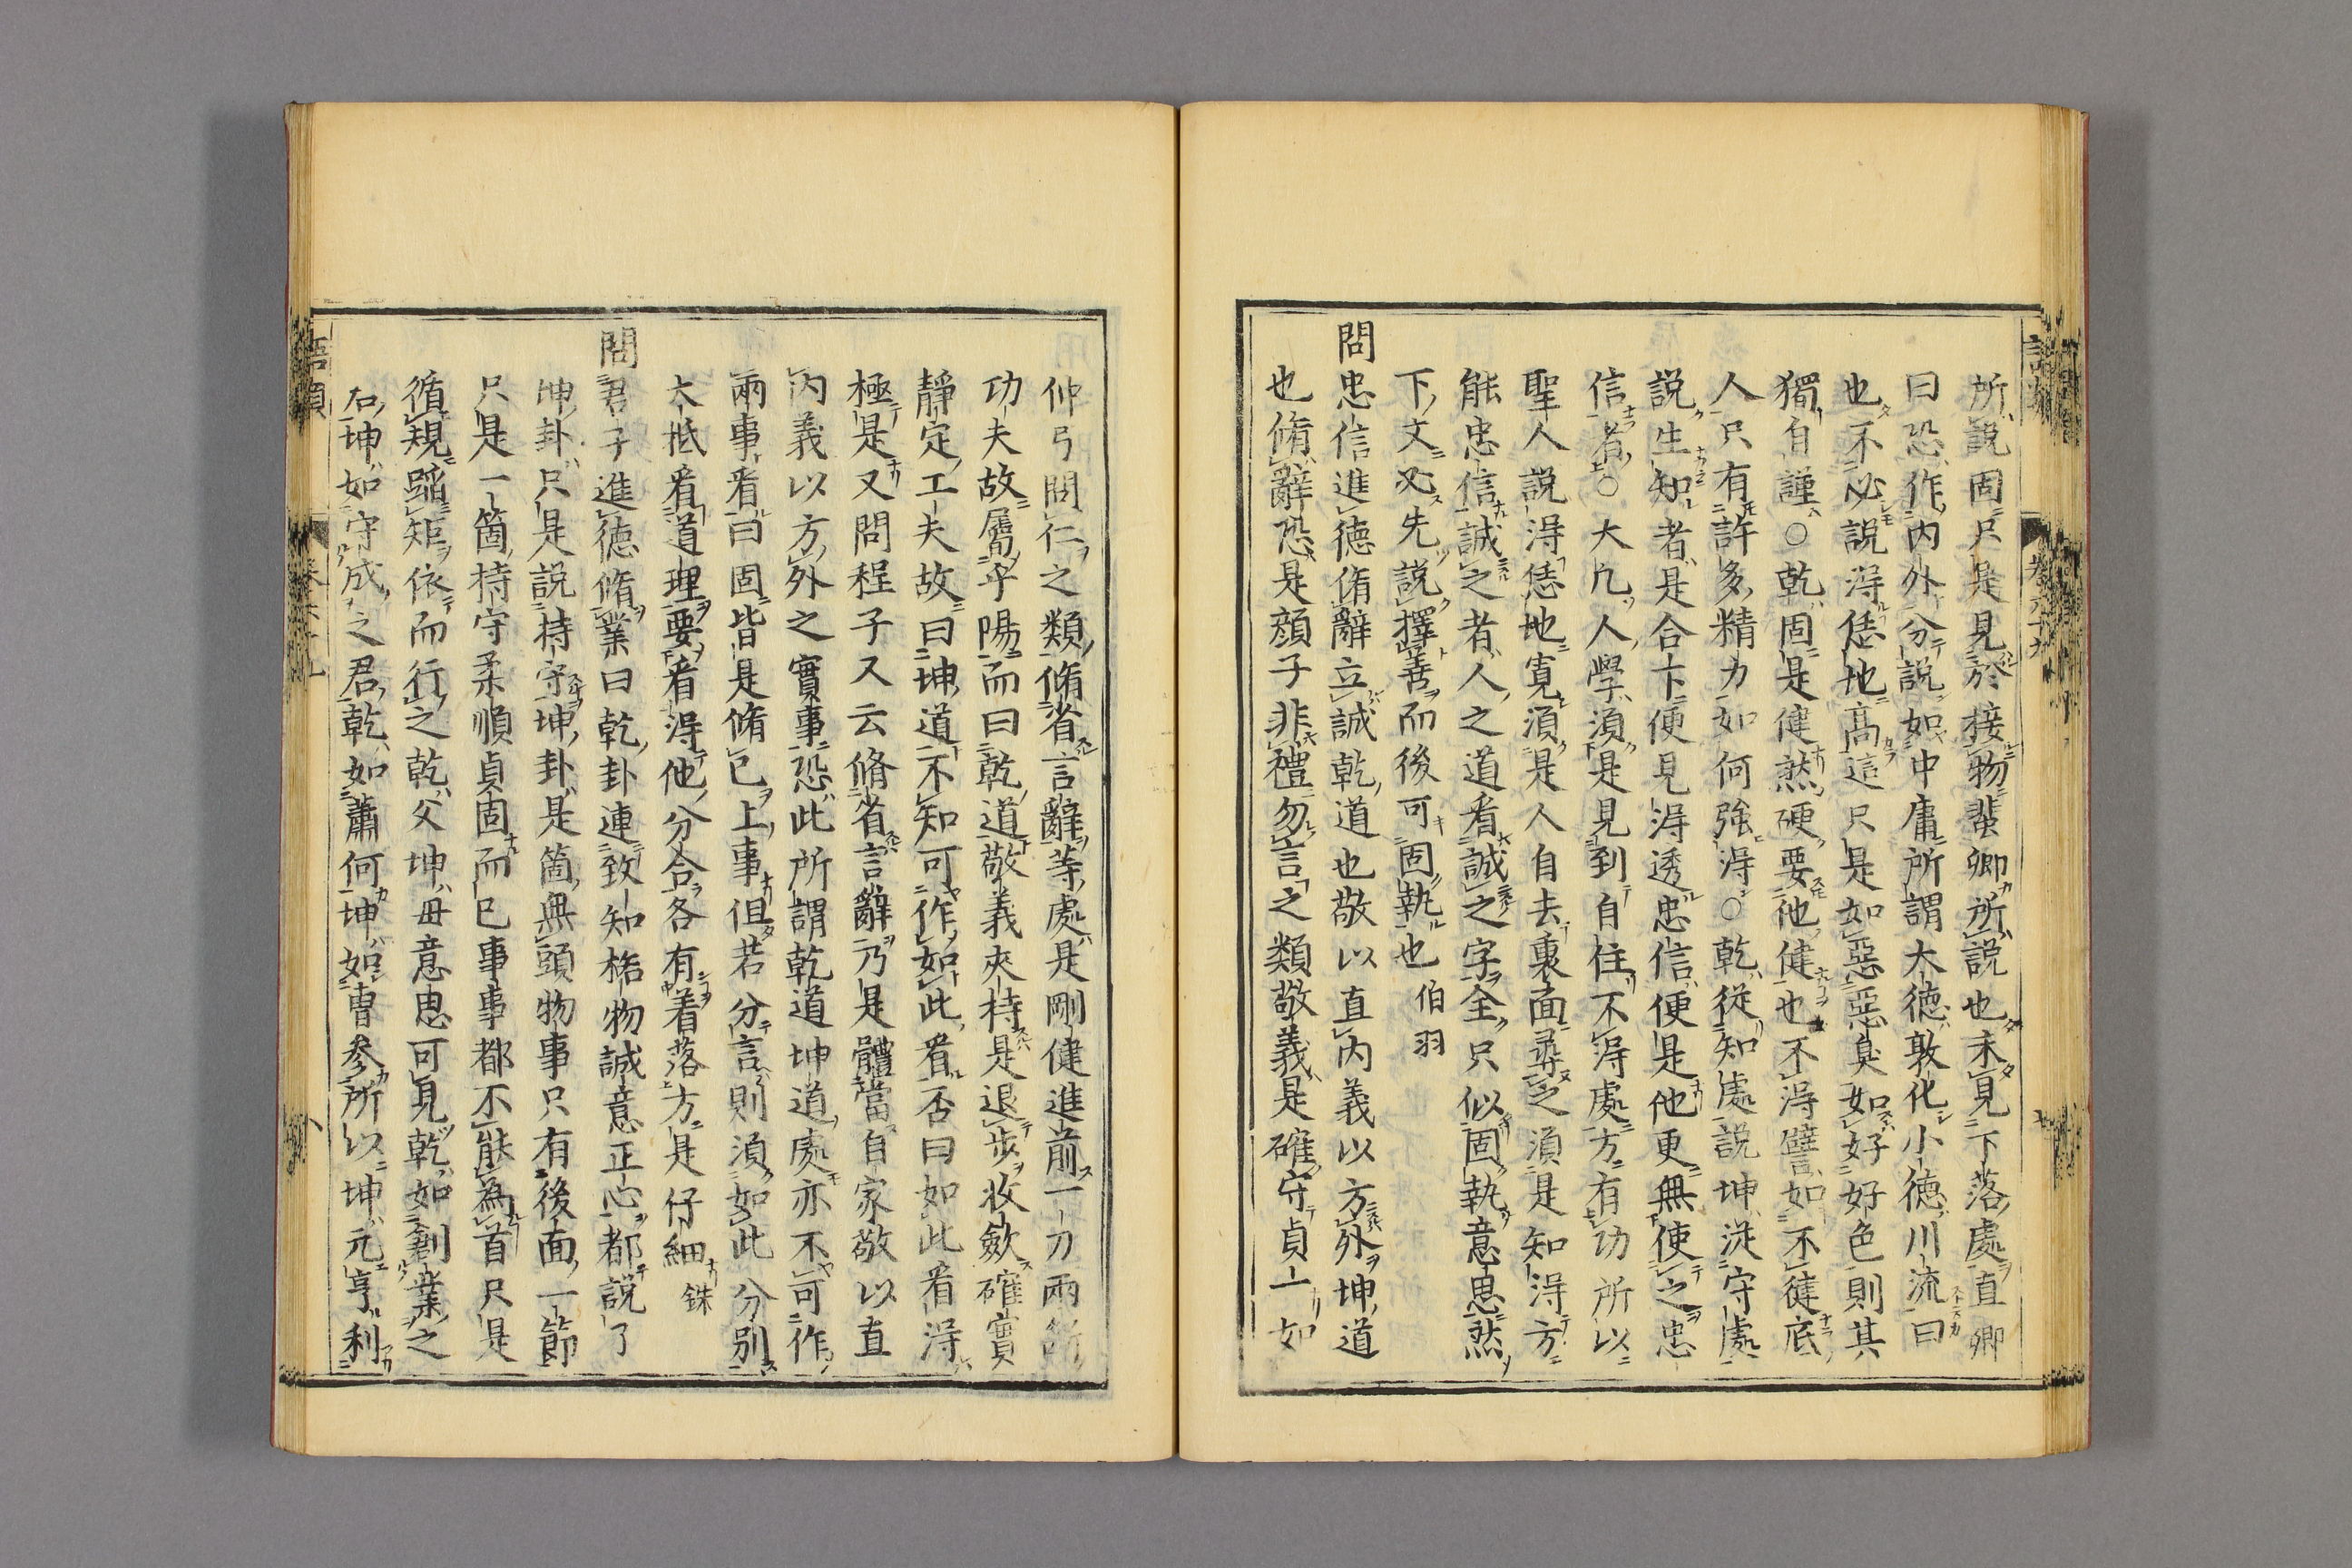 所說固只是見於接物蜚卿所說也未見下落處直卿
曰恐作內外分說如中庸所謂大德敦化小德川流曰
也不必說淂恁地高這只是如惡惡臭如好好色則其
獨自謹○乾固是健然硬要他健也不淂譬如不健底
人只有許多精力如何強淂○乾從知處說坤從守處
說生知者是合下便見淂透忠信便是他更無使之忠
信者○大凡人學湏是見到自住不淂處方有功所以
聖人說淂恁地寬湏是人自去裏面尋之湏是知淂方
能忠信誠之者人之道看誠之字全只似固執意思然
下文必先說擇善而後可固執也 伯羽
問忠信進德脩辭立誠乾道也敬以直內義以方外坤道
也脩辭恐是顔子非禮勿言之類敬義是確守貞一如
仲弓問仁之類脩省言辭等處是剛健進前一刀兩斷
功夫故屬乎陽而曰乾道敬義夾持是退步收斂確實
靜定工夫故曰坤道不知可作如此看否曰如此看淂
極是又問程子又云脩省言辭乃是體當自家敬以直
內義以方外之實事恐此所謂乾道坤道處亦不可作
兩事看曰固皆是脩己上事但若分言則湏如此分別
大抵看道理要看淂他分合各有着落方是仔細 銖
問君子進德脩業曰乾卦連致知格物誠意正心都說了
坤卦只是說持守坤卦是箇無頭物事只有後面一節
只是一箇持守柔順貞固而已事事都不能為首只是
循規蹈矩依而行之乾父坤母意思可見乾如創業之
君坤如守成之君乾如蕭何坤如曹參所以坤元亨利
語類 卷六十九 七
語類 卷六十九 八